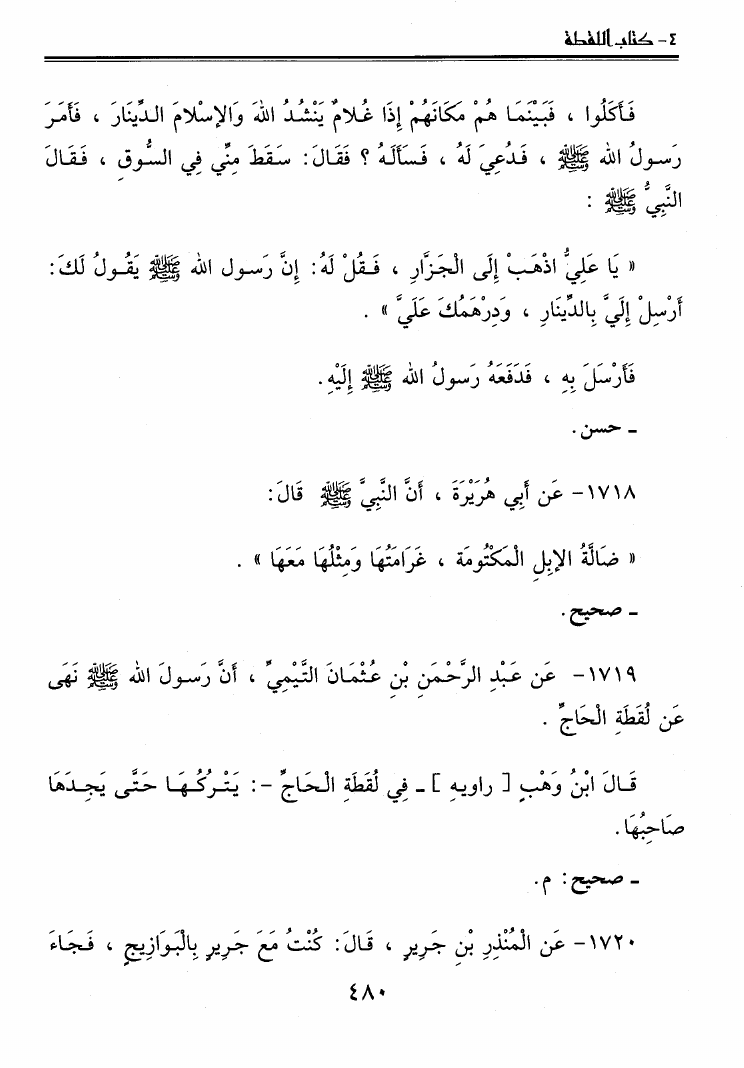 ٤- كتاب اللقطة
فَأَكَلُوا ، فَبَيْنَمَا هُمْ مَكَانَهُمْ إِذَا غُلامٌ يَنْشُدُ اللهَ وَالإسْلامَ الدِّينَارَ ، فَأَمَرَ
رَسولُ الله ﷺ ، فَدُعِيَ لَهُ ، فَسَأَلَهُ ؟ فَقَالَ: سَقَطَ مِنِّي فِي السُّوقِ ، فَقَالَ
النَّبِيُّ ﷺ :
« يَا عَلِيُّ اذْهَبْ إِلَى الْجَزَّارِ ، فَقُلْ لَهُ: إِنَّ رَسول الله ﷺ يَقُولُ لَكَ:
أَرْسِلْ إِلَيَّ بِالدِّينَارِ ، وَدِرْهَمُكَ عَلَيَّ » .
فَأَرْسَلَ بِهِ ، فَدَفَعَهُ رَسولُ الله ﷺ إِلَيْهِ.
ـ حسن.
١٧١٨- عَن أَبِي هُرَيْرَةَ ، أَنَّ النَّبِيَّ ﷺ قَالَ:
« ضَالَّةُ الإبِلِ الْمَكْتُومَة ، غَرَامَتُهَا وَمِثْلُهَا مَعَهَا » .
ـ صحيح.
١٧١٩- عَن عَبْدِ الرَّحْمَنِ بْنِ عُثْمَانَ التَّيْمِيِّ ، أَنَّ رَسولَ الله ﷺ نَهَى
عَن لُقَطَةِ الْحَاجِّ .
قَالَ ابْنُ وَهْبٍ [ راويهِ ] ـ فِي لُقَطَةِ الْحَاجِّ -: يَتْرُكُهَا حَتَّى يَجِدَهَا
صَاحِبُهَا.
ـ صحيح: م.
١٧٢٠- عَن الْمُنْذِرِ بْنِ جَرِيرٍ ، قَالَ: كُنْتُ مَعَ جَرِيرٍ بِالْبَوَازِيجِ ، فَجَاءَ
٤٨٠